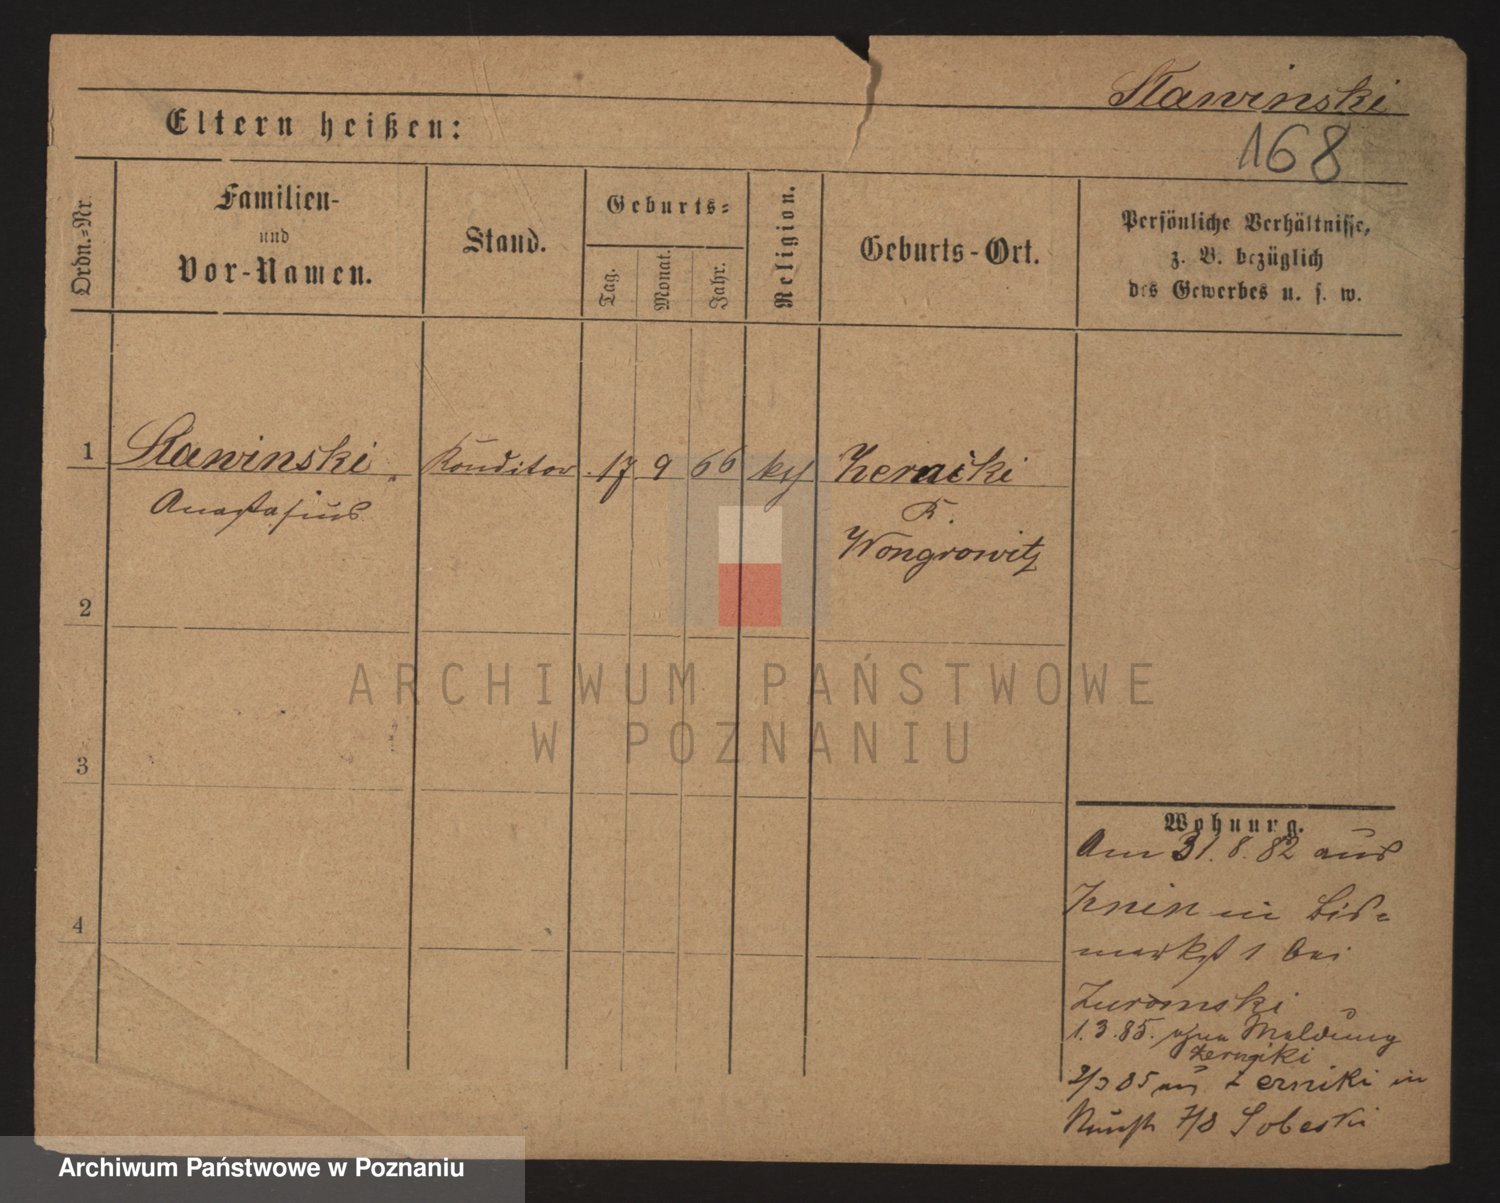 Stawinski
168
Eltern heißen:
Ordn.=Nr.
Familien-
und
Vor-Namen.
Stand.
Geburts=
Tag.
Monat.
Jahr.
Religion.
Geburts-Ort.
Persönliche Verhältnisse,
z. B. bezüglich
des Gewerbes u. s. w.
1
Stawinski
Konditor
17
9
66
kth
Zerniki
Anastasius
K.
Wongrowitz
2
3
4
Wohnung.
Am 31.8.82 aus
Znin in Bis=
markst 1 bei
Zuromski
1.3.85. ohne Meldung
Zerniki
2/3 85 aus Zerniki in
7/8 Sobeski
ARCHIWUM PAŃSTWOWE
W POZNANIU
Archiwum Państwowe w Poznaniu